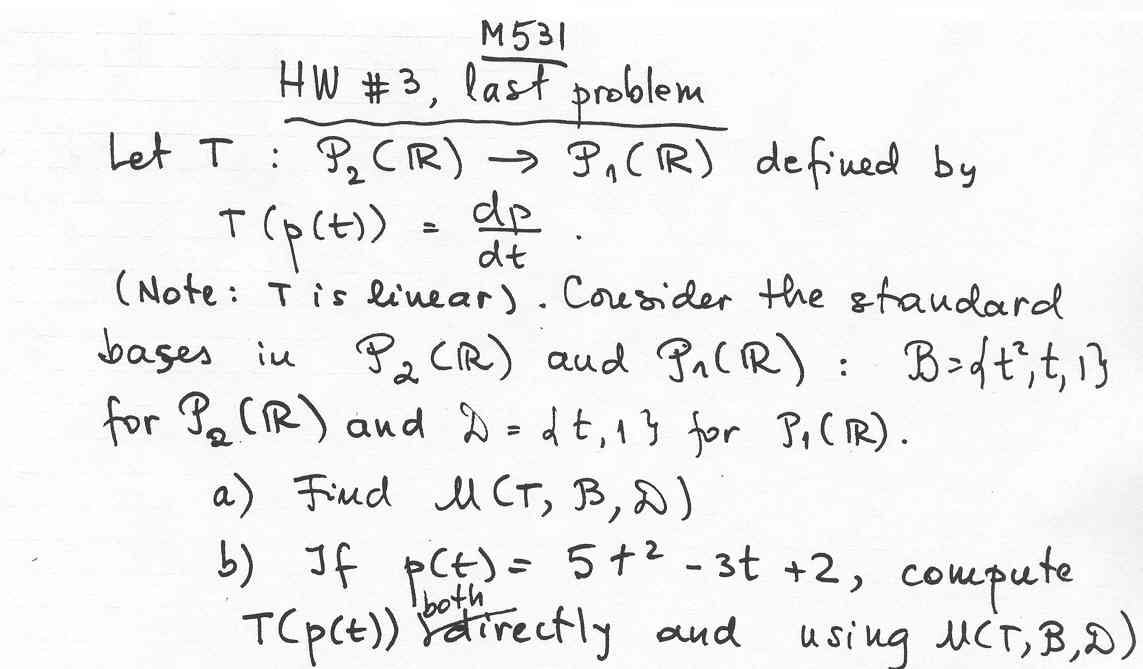 M531
HW #3, last problem
Let T : P₂(ℝ) → P₁(ℝ) defined by
T(p(t)) = dp/dt .
(Note: T is linear). Consider the standard
bases in P₂(ℝ) and P₁(ℝ) : B={t²,t,1}
for P₂(ℝ) and D = {t,1} for P₁(ℝ).
a) Find M(T, B, D)
b) If p(t) = 5t² - 3t +2, compute
T(p(t)) both directly and using M(T,B,D)